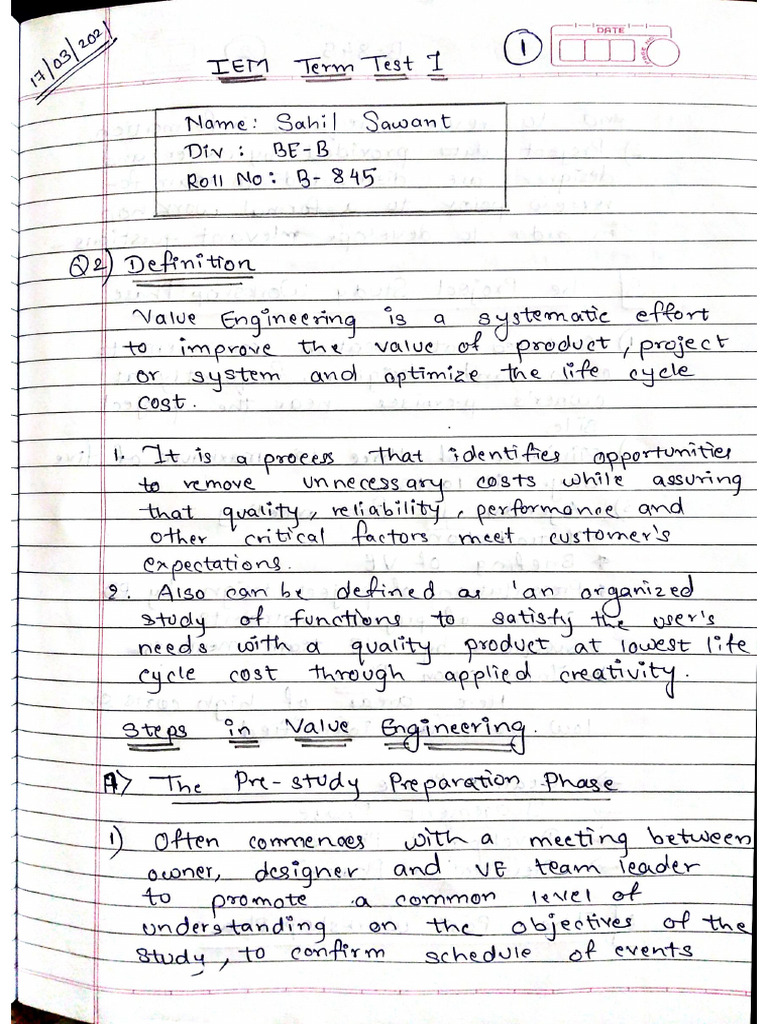 17/03/202
IEM Term Test 1
1
DATE
Name: Sahil Sawant
Div: BE-B
Roll No: B-845
Q2) Definition
Value Engineering is a systematic effort
to improve the value of product, project
or system and optimize the life cycle
cost.
1. It is a process that identifies opportunities
to remove unnecessary costs while assuring
that quality, reliability, performance and
other critical factors meet customer's
expectations.
2. Also can be defined as 'an organized
study of functions to satisfy the user's
needs with a quality product at lowest life
cycle cost through applied creativity.
Steps in Value Engineering.
A> The Pre-study Preparation Phase
1) Often commences with a meeting between
owner, designer and VE team leader
to promote a common level of
understanding on the objectives of the
study, to confirm schedule of events